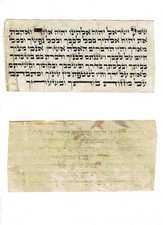 שמע ישראל יהוה אלהינו יהוה אחד ואהבת
את יהוה אלהיך בכל לבבך ובכל נפשך ובכל
מאדך והיו הדברים האלה אשר אנכי מצוך
היום על לבבך ושננתם לבניך ודברת בם בשבתך
בביתך ובלכתך בדרך ובשכבך ובקומך וקשרתם
לאות על ידך והיו לטטפת בין עיניך וכתבתם
על מזוזות ביתך ובשעריך